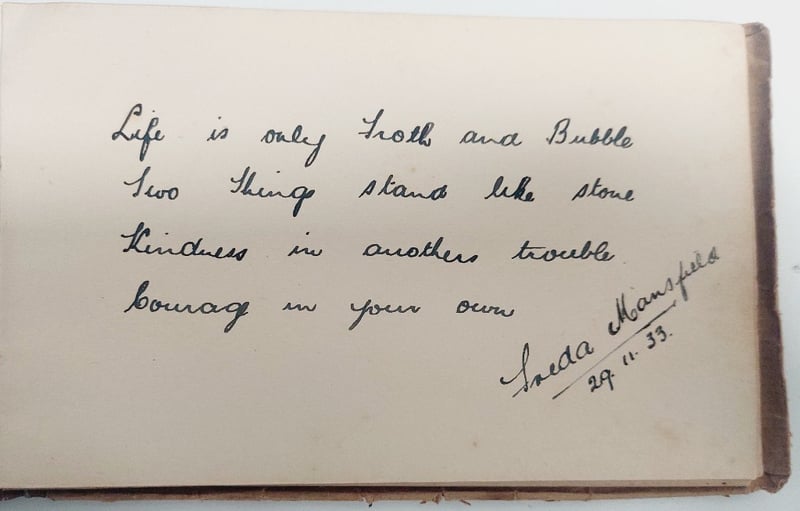 Life is only Froth and Bubble
Two Things stand like stone
Kindness in anothers trouble
Courage in your own
Freda Mansfield
29.11.33.